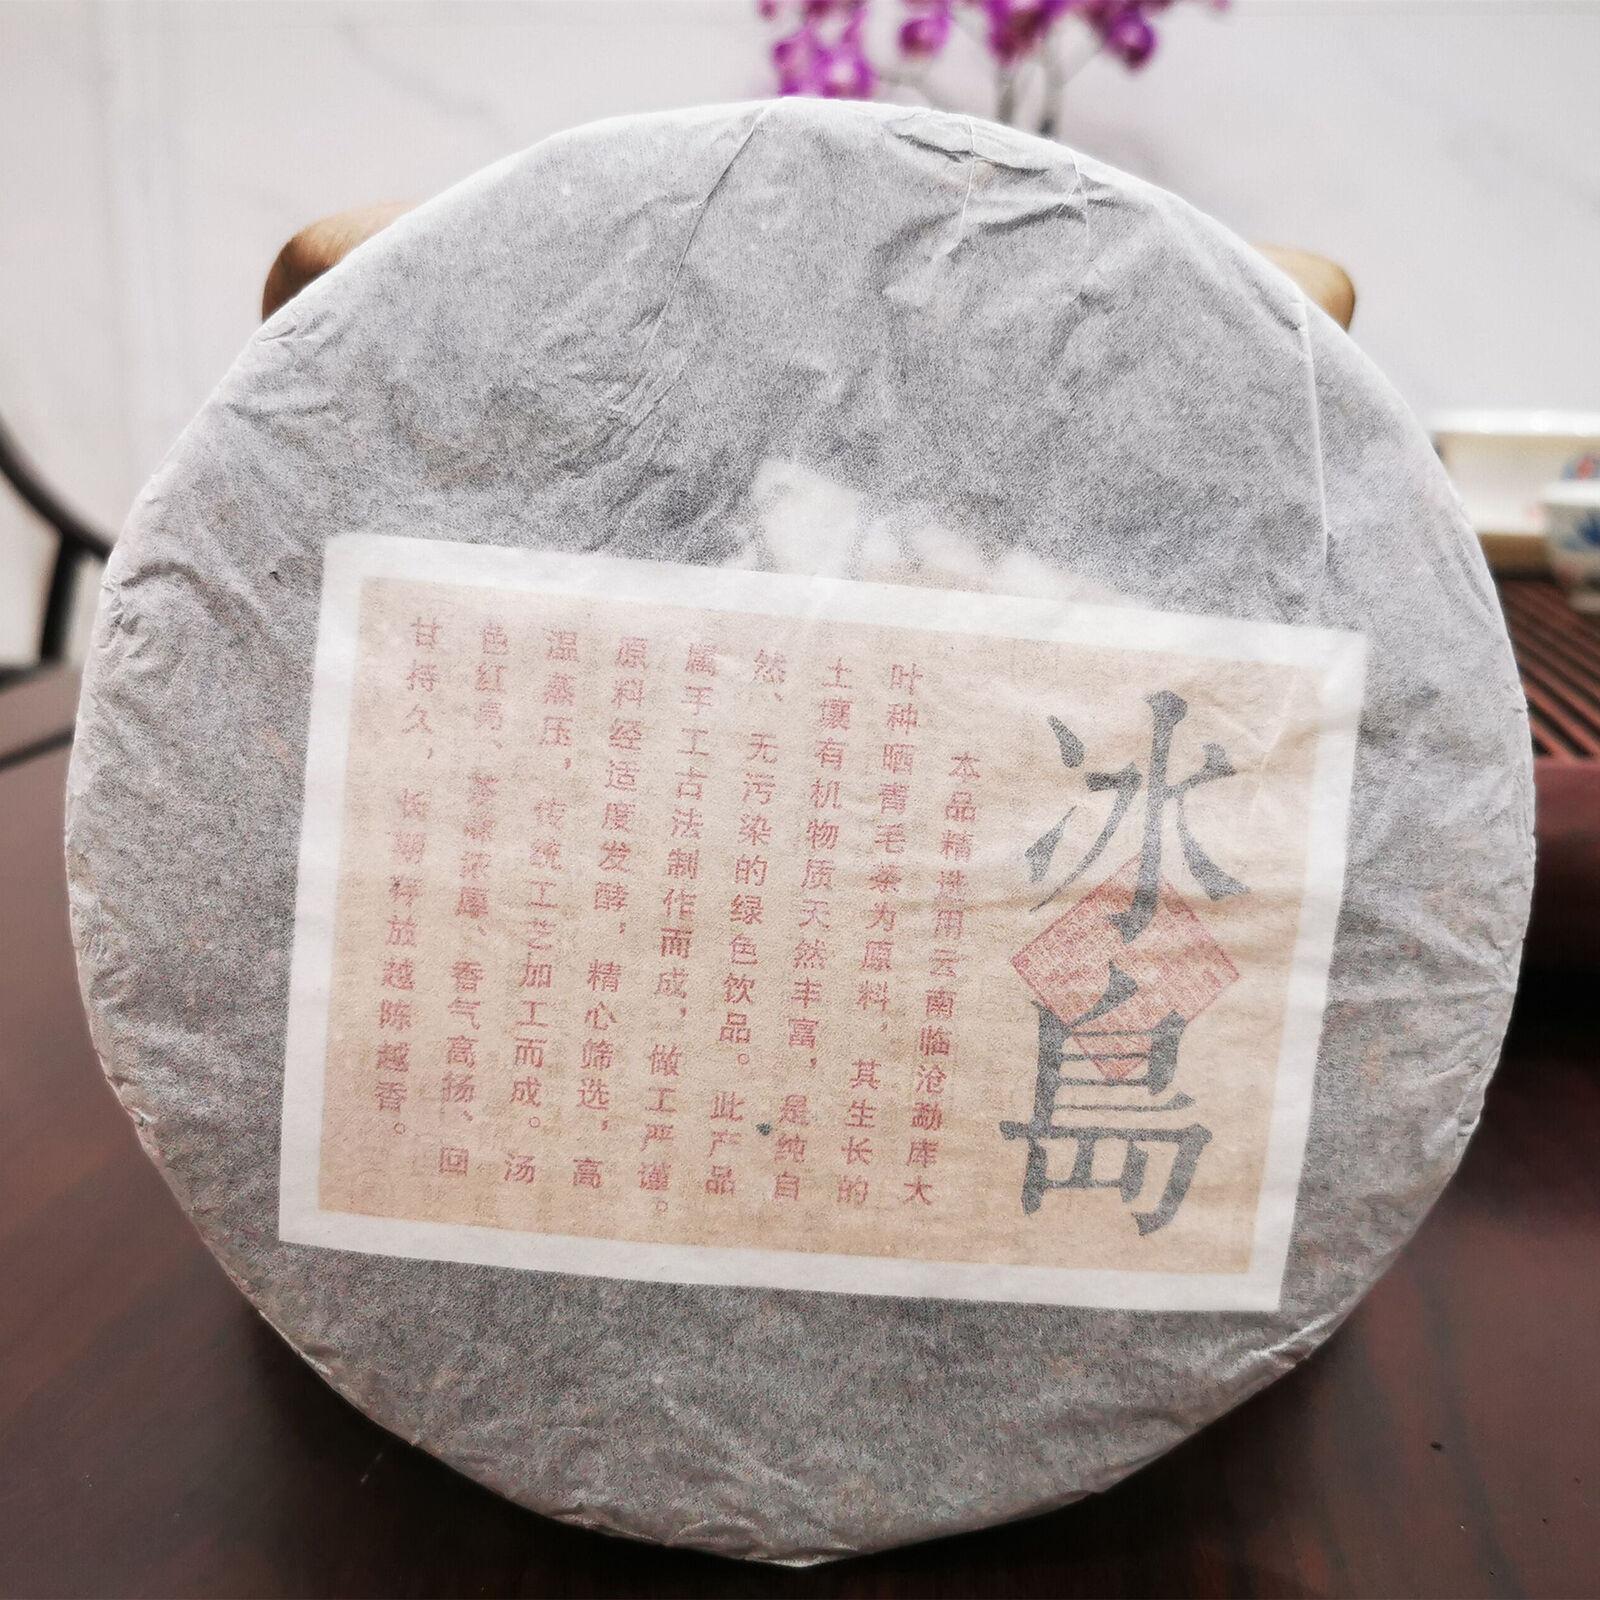 冰岛
本品精选用云南临沧勐库大
叶种晒青毛茶为原料，其生长的
土壤有机物质天然丰富，是纯自
然、无污染的绿色饮品。此产品
属手工古法制作而成，做工严谨。
原料经适度发酵，精心筛选，高
温蒸压，传统工艺加工而成。汤
色红亮、茶味浓厚、香气高扬、回
甘持久，长期存放越陈越香。